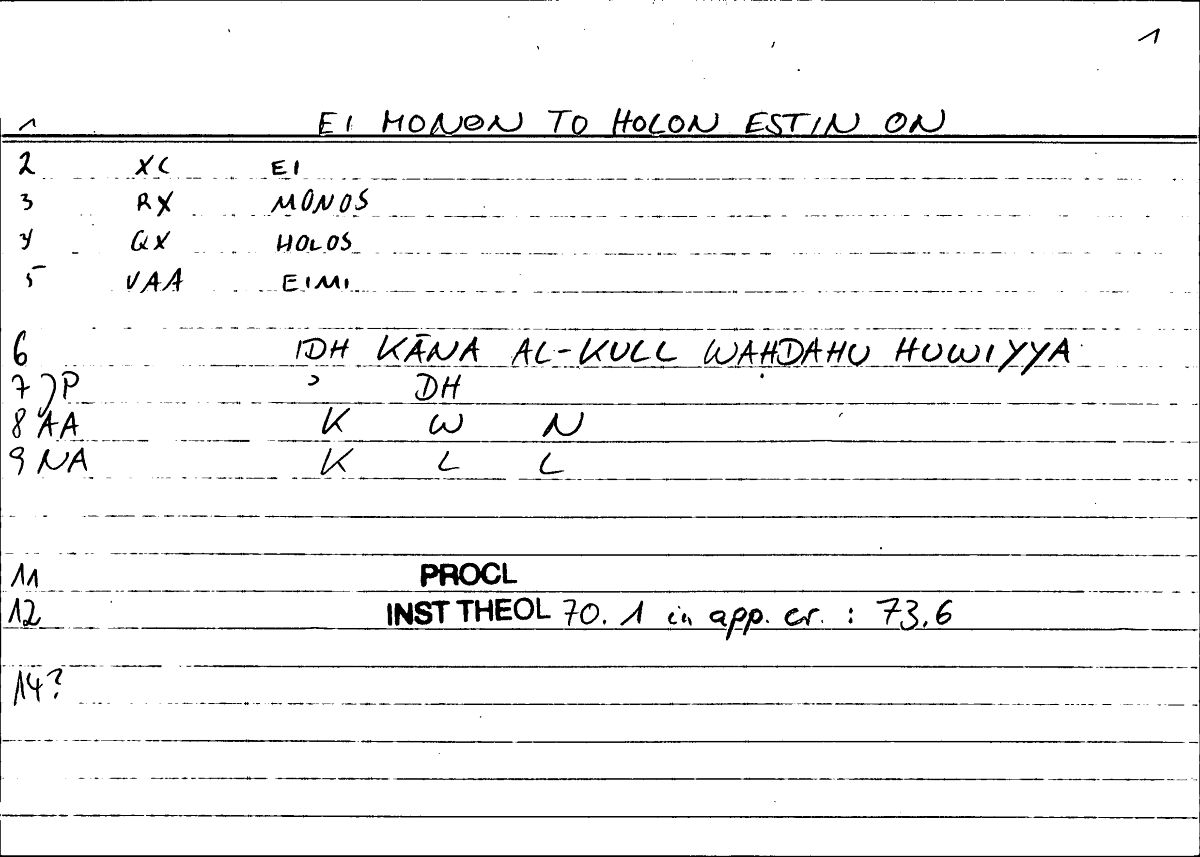 1
1 EI MONON TO HOLON ESTIN ON
2 XC EI
3 RX MONOS
4 QX HOLOS
5 VAA EIMI
6 IDH KĀNA AL-KULL WAḤDAHU HUWIYYA
7 JP ʾ DH
8 AA K W N
9 NA K L L
11 PROCL
12 INST THEOL 70. 1 in app. cr. : 73,6
14?